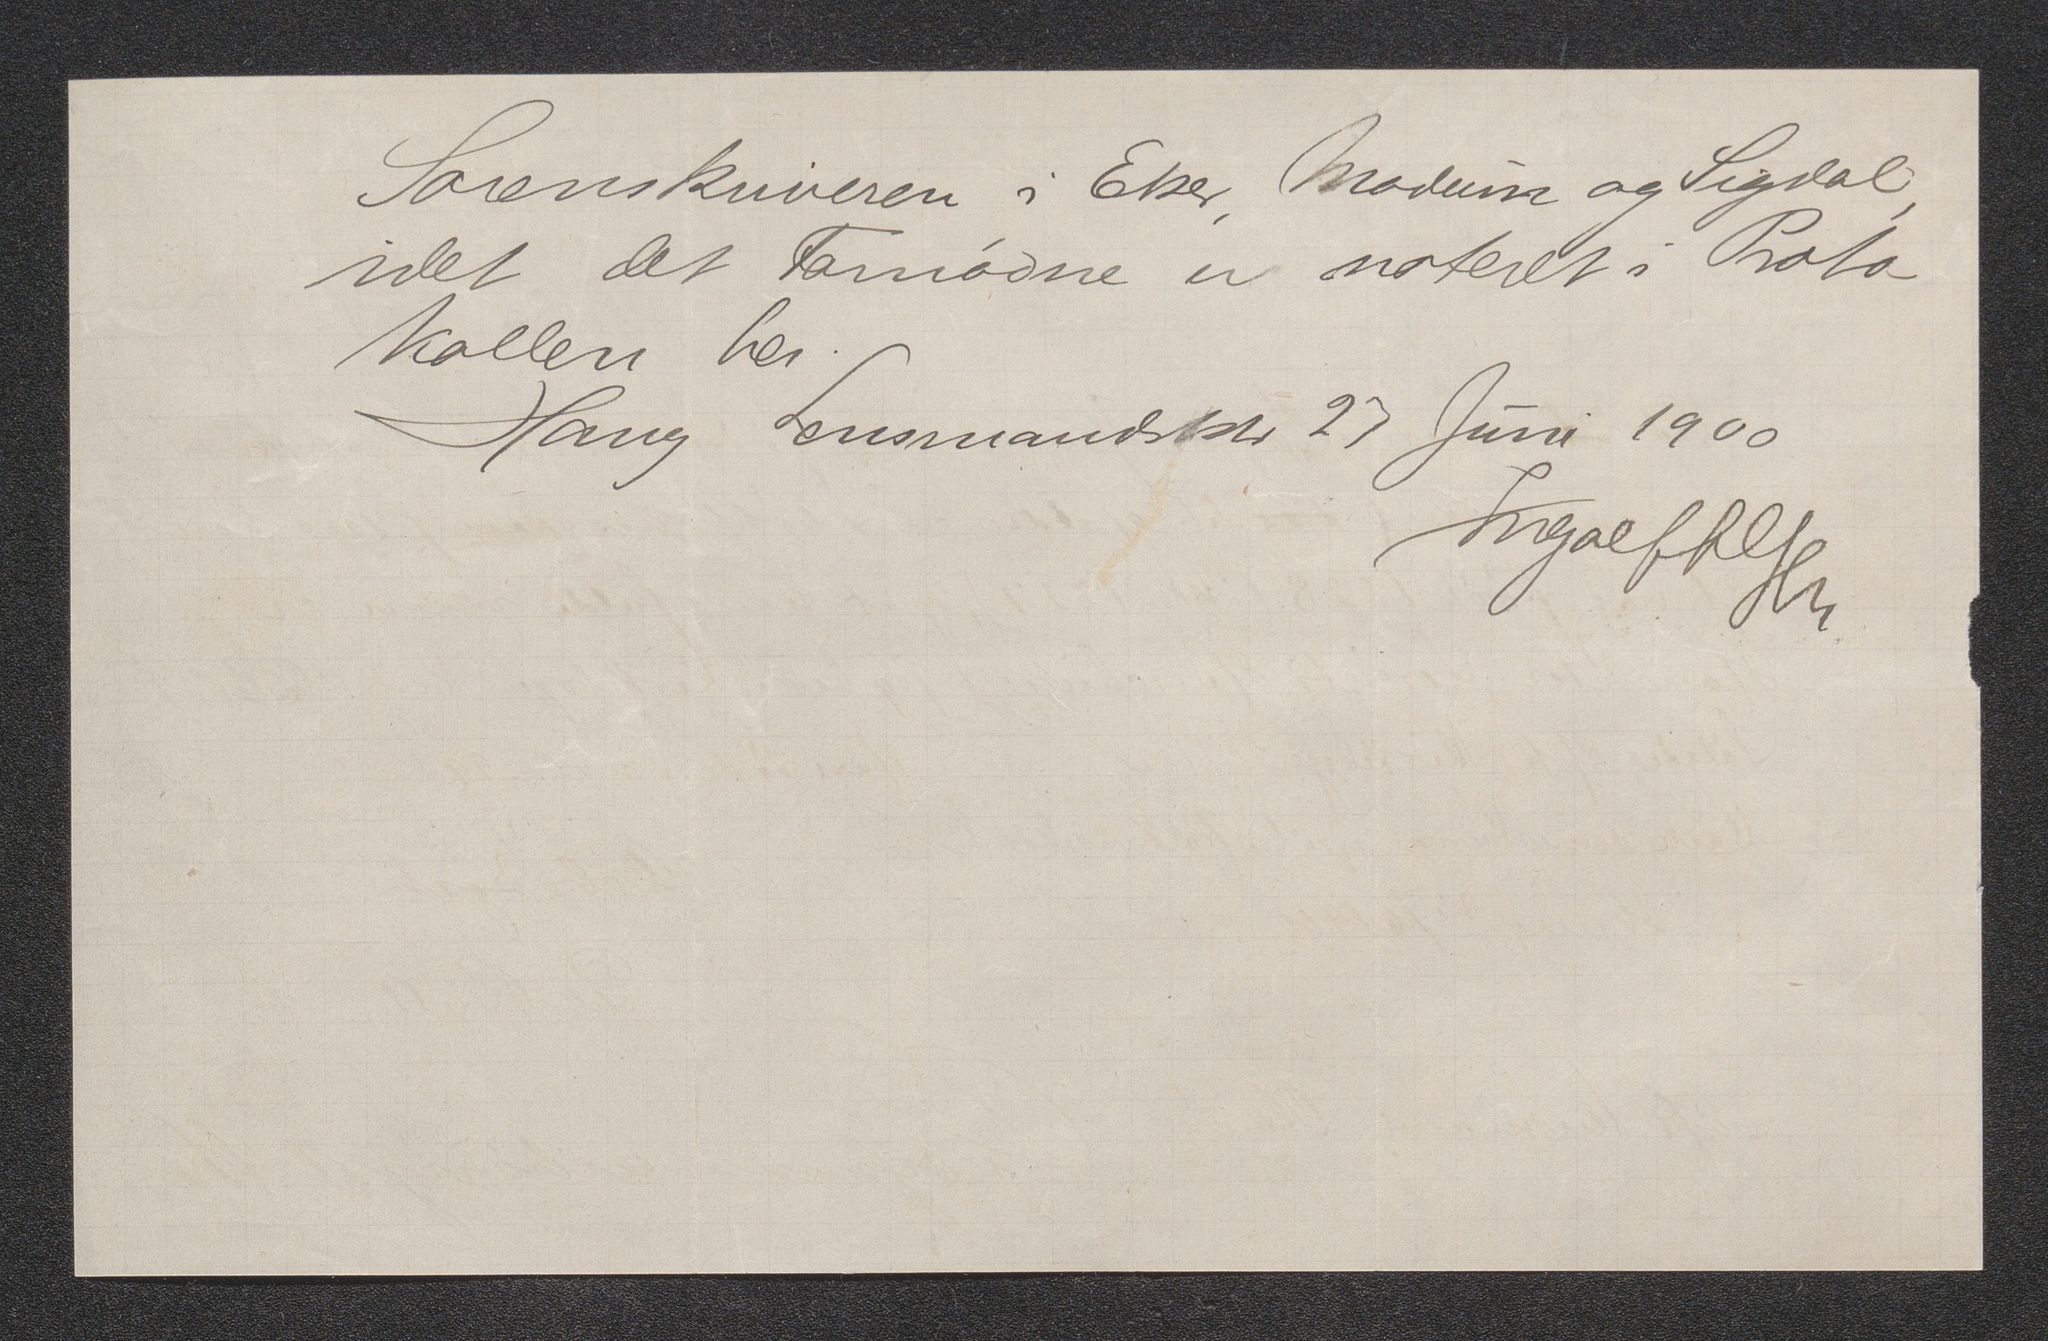 Sorenskriveren i Eker, Modum og Sigdal,
idet det Fornødne er noteret i Proto
kollen her.
Haug Lensmandsktr 27 Juni 1900
Ingolf